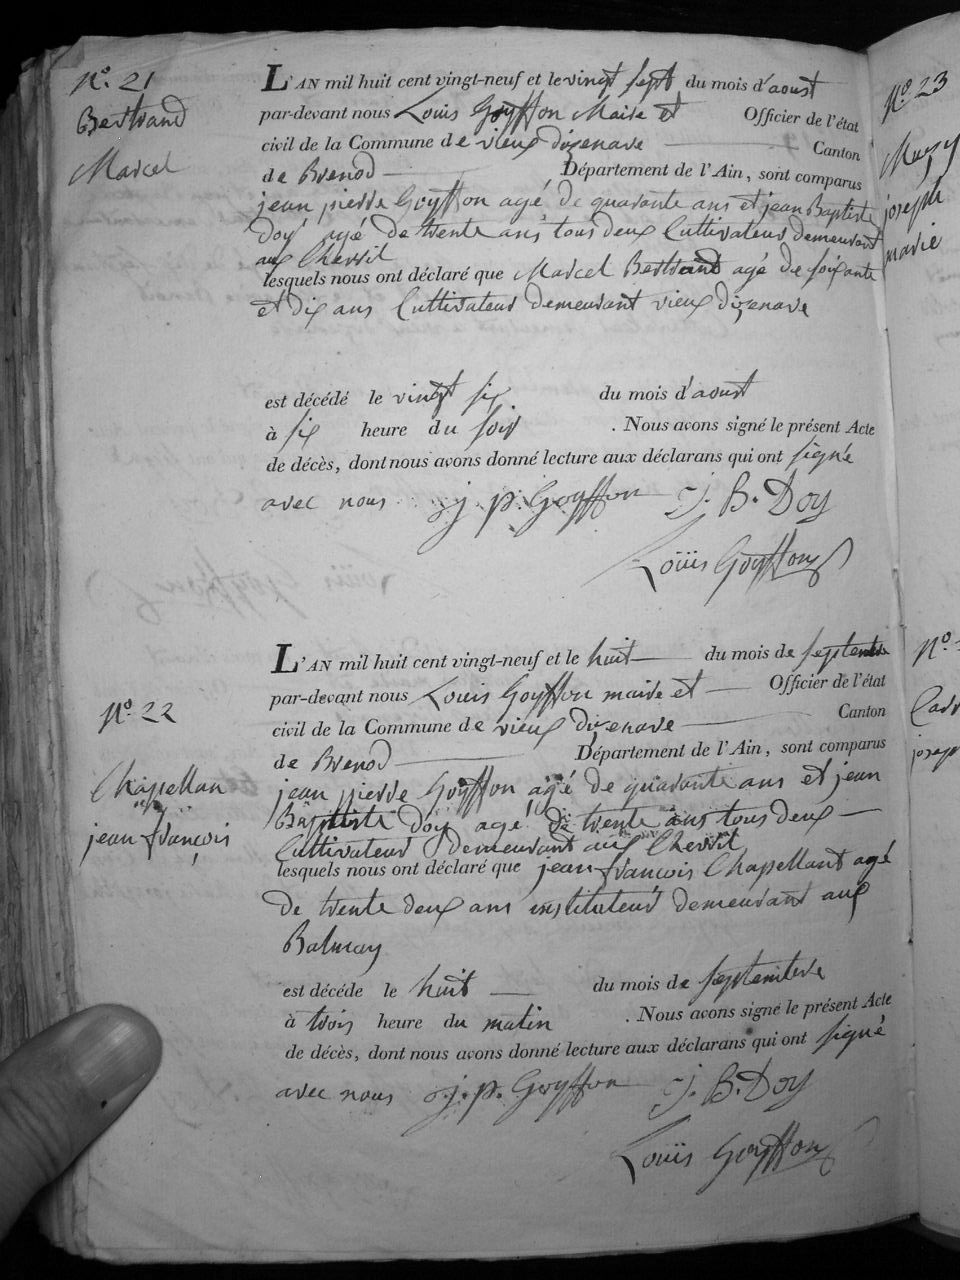 N.º 21
Bertrand
Marcel
L'AN mil huit cent vingt-neuf et le vingt sept du mois d'aoust
par-devant nous Louis Goÿffon Maire et Officier de l'état
civil de la Commune de vieux dizenave Canton
de Brenod Département de l'Ain, sont comparus
jean pierre Goÿffon agé de quarante ans et jean Baptiste
Doy agé de trente ans tous deux Cultivateurs demeurant
aux Cherril
lesquels nous ont déclaré que Marcel Bertrand agé de soixante
et dix ans Cultivateur demeurant vieux dizenave
est décédé le vingt six du mois d'aoust
à six heure du soir . Nous avons signé le présent Acte
de décès, dont nous avons donné lecture aux déclarans qui ont signé
avec nous j. p. Goyffon J. B. Doy
Louis Goÿffon
N.º 22
Chapellan
jean françois
L'AN mil huit cent vingt-neuf et le huit du mois de septembre
par-devant nous Louis Goyffon maire et Officier de l'état
civil de la Commune de vieux dizenave Canton
de Brenod Département de l'Ain, sont comparus
jean pierre Goÿffon agé de quarante ans et jean
Baptiste doy agé de trente ans tous deux
Cultivateurs demeurant aux Cherril
lesquels nous ont déclaré que jean françois Chapellant agé
de trente deux ans instituteur demeurant aux
Balmay
est décédé le huit du mois de septembre
à trois heure du matin . Nous avons signé le présent Acte
de décès, dont nous avons donné lecture aux déclarans qui ont signé
avec nous j. p. Goyffon J. B. Doy
Louis Goyffon
N.º 23
joseph
marie
N.º